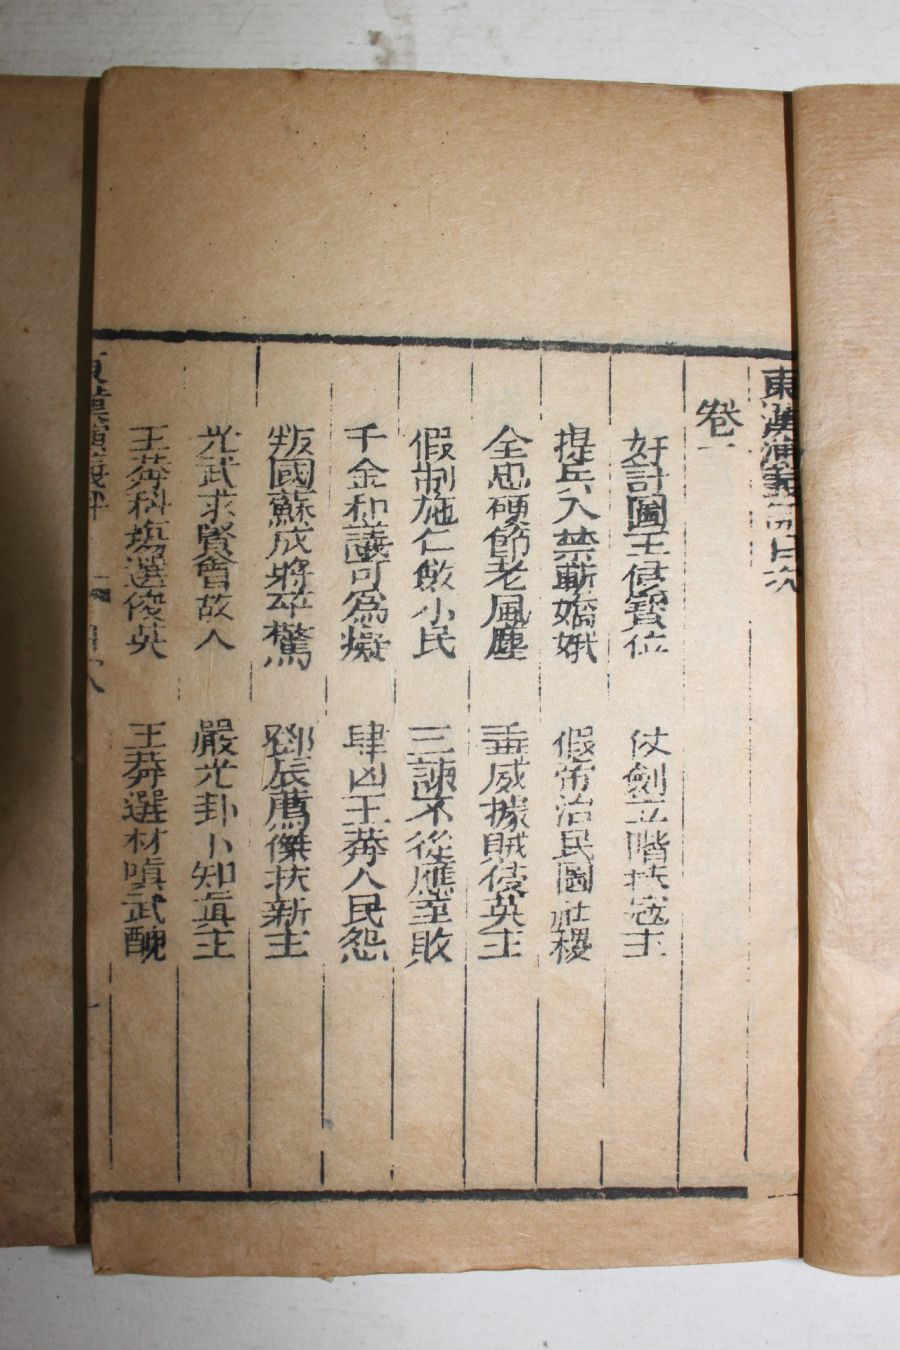 東漢演義評目次
卷一
奸計圖王侵寶位 仗劍立階扶寇主
提兵入禁斬嬌娥 假帝治民圖社稷
全忠硬節老風塵 垂威據賊侵英主
假制施仁斂小民 三諫不從應至敗
千金和議可為癡 肆凶王莽人民怨
叛國蘇成將卒驚 鄧辰薦傑扶新主
光武求賢會故人 嚴光卦卜知真主
王莽科塲選俊英 王莽選材嗔武醜
東漢演義評 目次 一